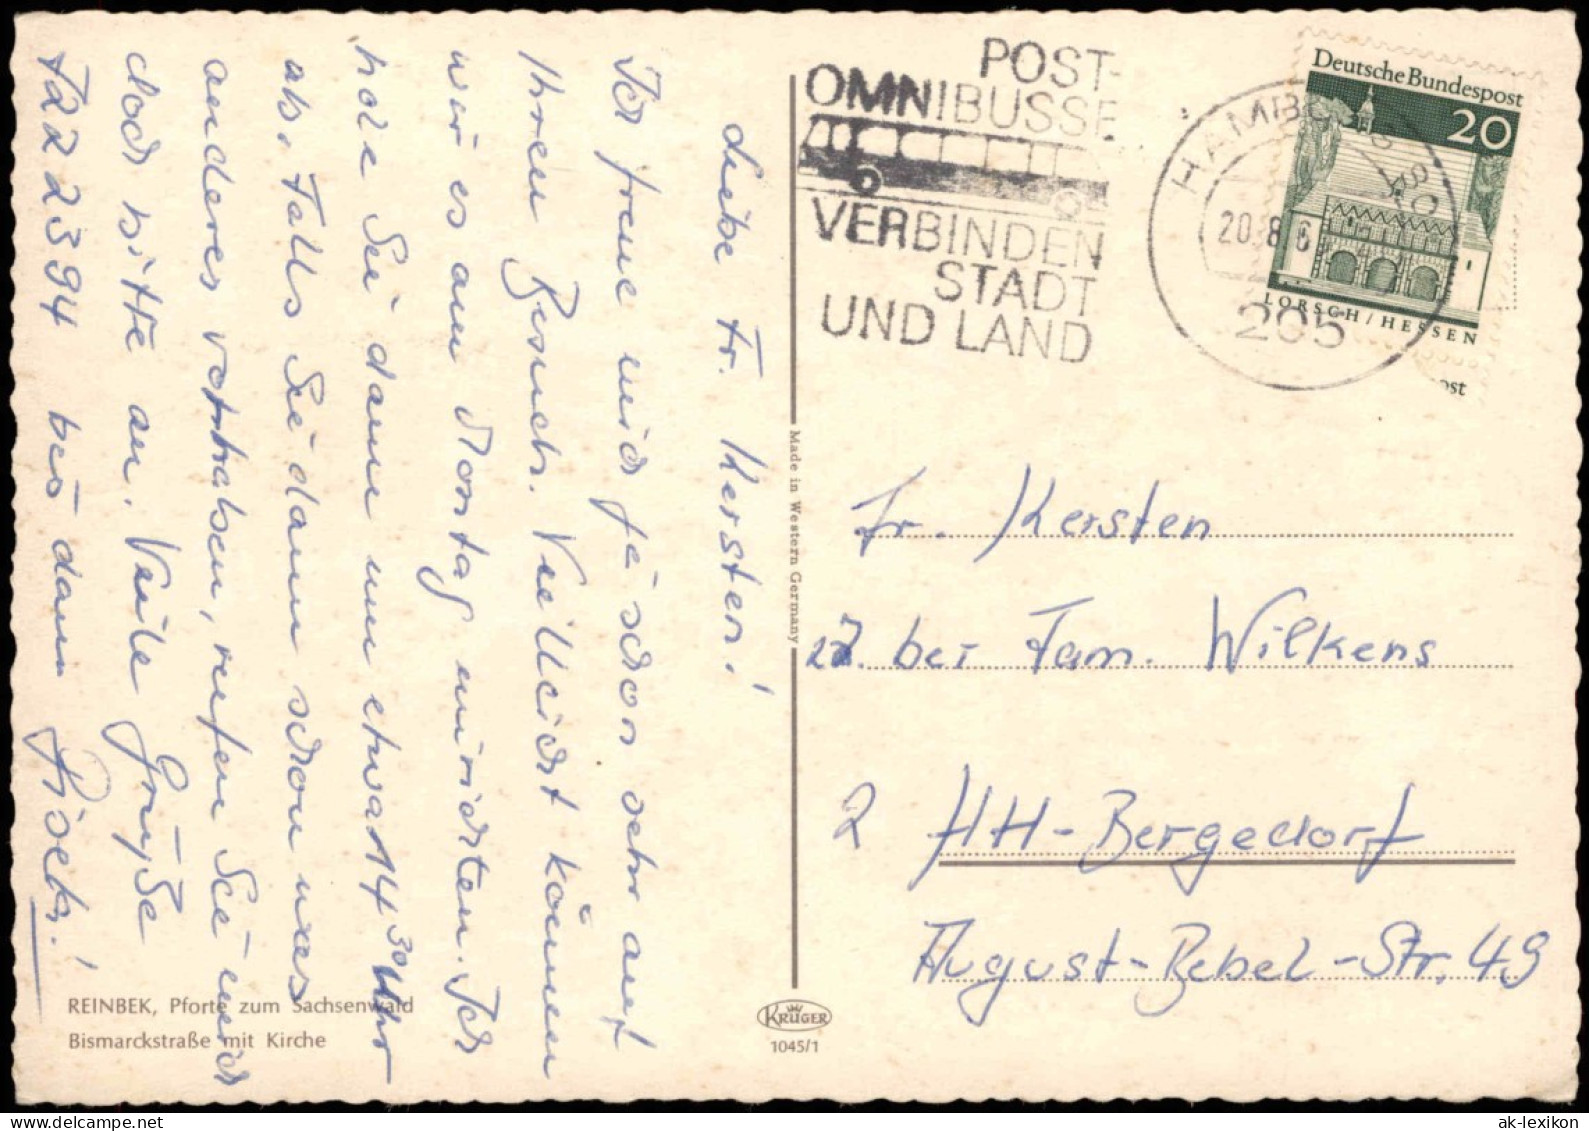 Liebe Fr. Kersten!
Ich freue mich ja schon sehr auf
Ihren Besuch. Vielleicht können
wir es am Montag einrichten. Ich
hole Sie dann um etwa 14 30 Uhr
ab. Falls Sie dann schon was
anderes vorhaben, rufen Sie mich
doch bitte an. Viele Grüße
7222394 bis dann
REINBEK, Pforte zum Sachsenwald
Bismarckstraße mit Kirche
Made in Western Germany
KRÜGER
1045/1
POST-
OMNIBUSSE
VERBINDEN
STADT
UND LAND
HAMBURG 80
20.8.6
205
Deutsche Bundespost
20
LORSCH/HESSEN
ost
Fr. Kersten
bei Fam. Wilkens
2 HH-Bergedorf
August-Bebel-Str. 49
ak-lexikon